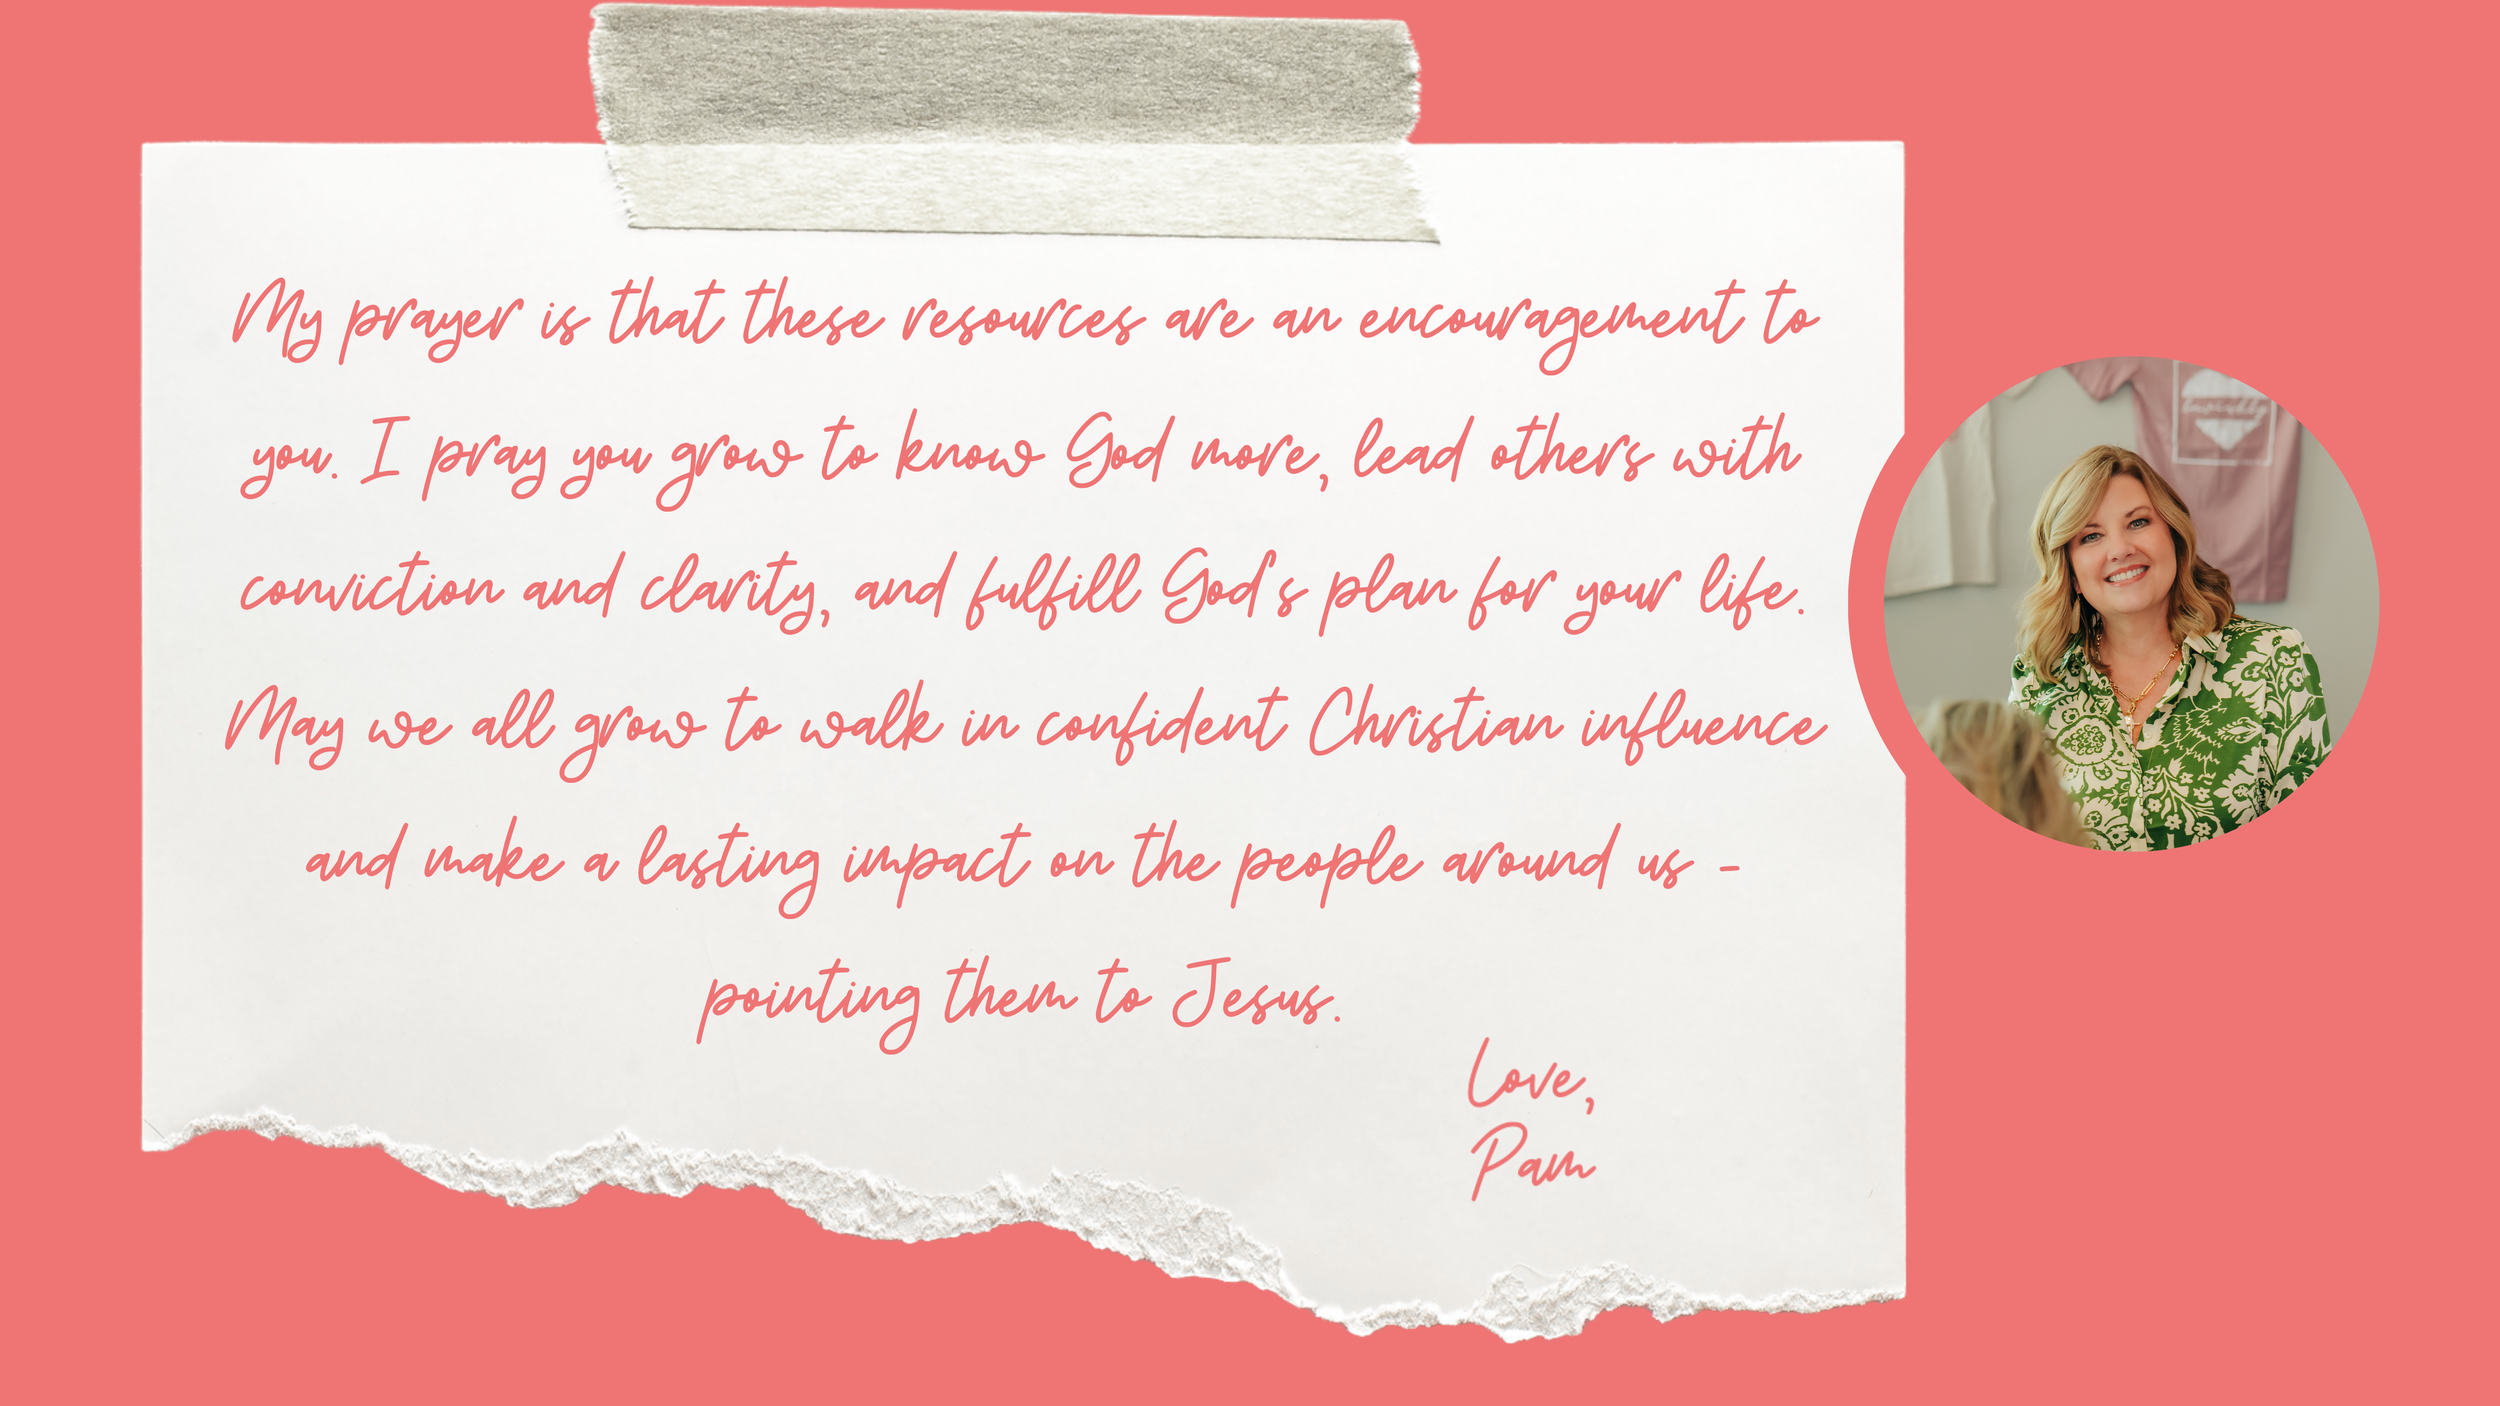 My prayer is that these resources are an encouragement to
you. I pray you grow to know God more, lead others with
conviction and clarity, and fulfill God's plan for your life.
May we all grow to walk in confident Christian influence
and make a lasting impact on the people around us -
pointing them to Jesus.
Love,
Pam